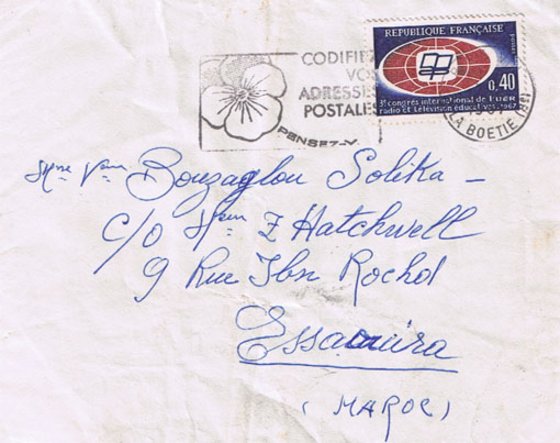 CODIFIEZ
VOS
ADRESSES
POSTALES
PENSEZ-Y
REPUBLIQUE FRANÇAISE
POSTES
0,40
3e congrès international de l'UER
radio et télévision éducatives, 1967
LA BOETIE (8e)
Bouzaglou Solika -
C/O Z Hatchwell
9 Rue Ibn Rochd
Essaouira
(MAROC)